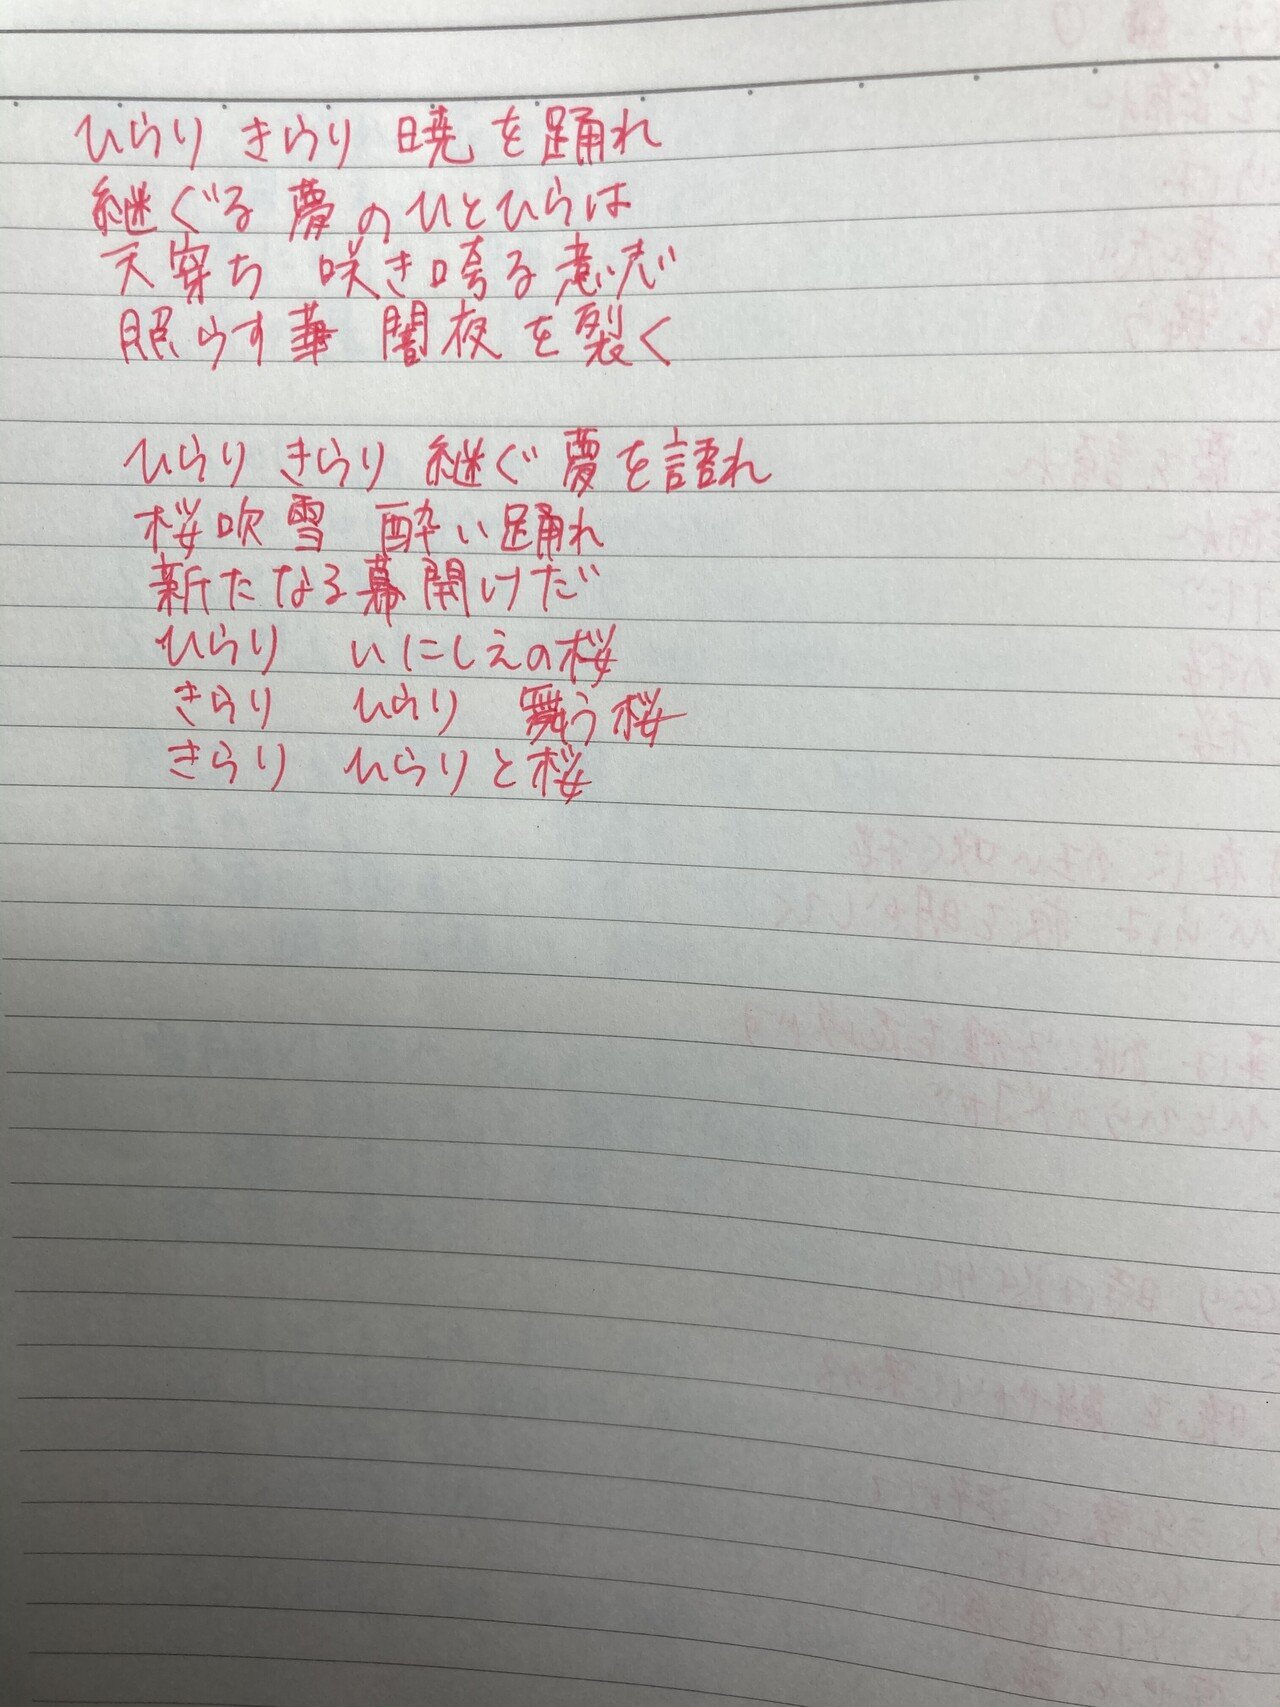 ひらり きらり 暁を踊れ
継ぐる 夢のひとひらは
天穿ち 咲き誇る意志
照らす華 闇夜を裂く
ひらり きらり 継ぐ夢を語れ
桜吹雪 酔い踊れ
新たなる幕開けだ
ひらり いにしえの桜
きらり ひらり 舞う桜
きらり ひらりと桜